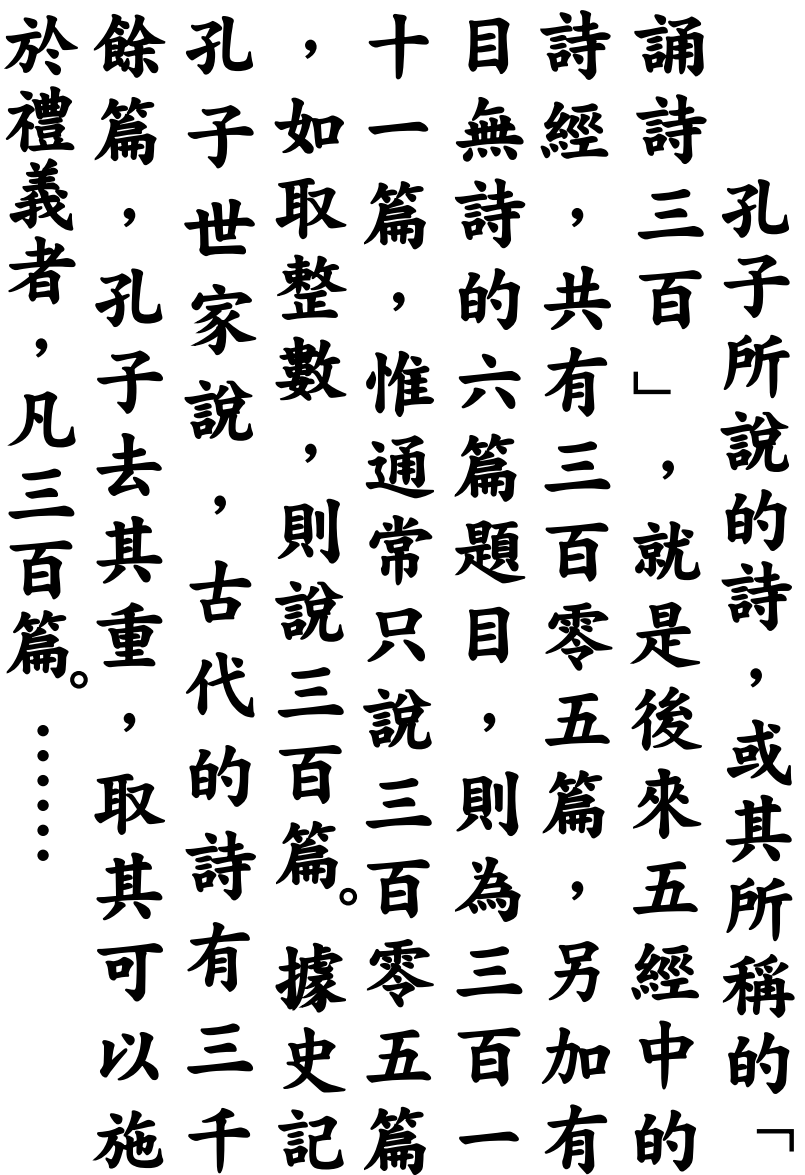 孔子所說的詩，或其所稱的「
誦詩三百」，就是後來五經中的
詩經，共有三百零五篇，另加有
目無詩的六篇題目，則為三百一
十一篇，惟通常只說三百零五篇
，如取整數，則說三百篇。據史記
孔子世家說，古代的詩有三千
餘篇，孔子去其重，取其可以施
於禮義者，凡三百篇。……